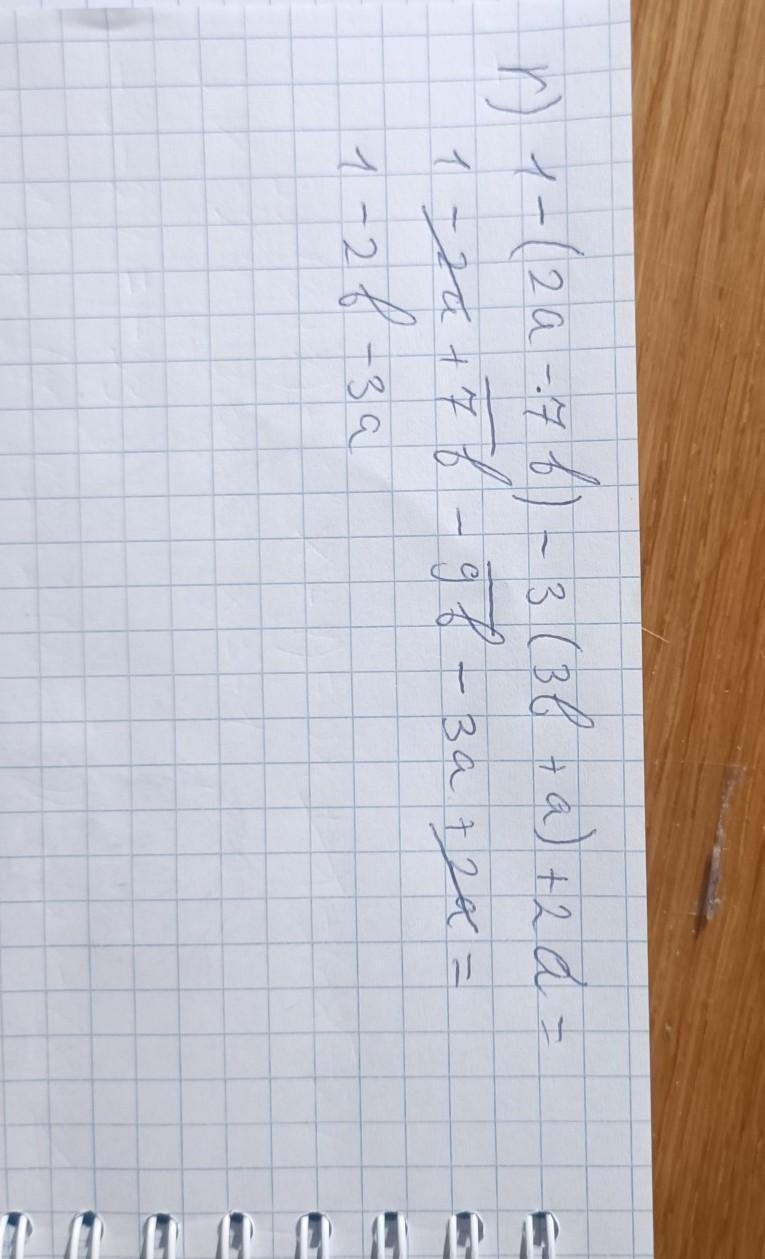 г) 1 - (2a - 7b) - 3(3b + a) + 2a =
1 - 2a + 7b - 9b - 3a + 2a =
1 - 2b - 3a